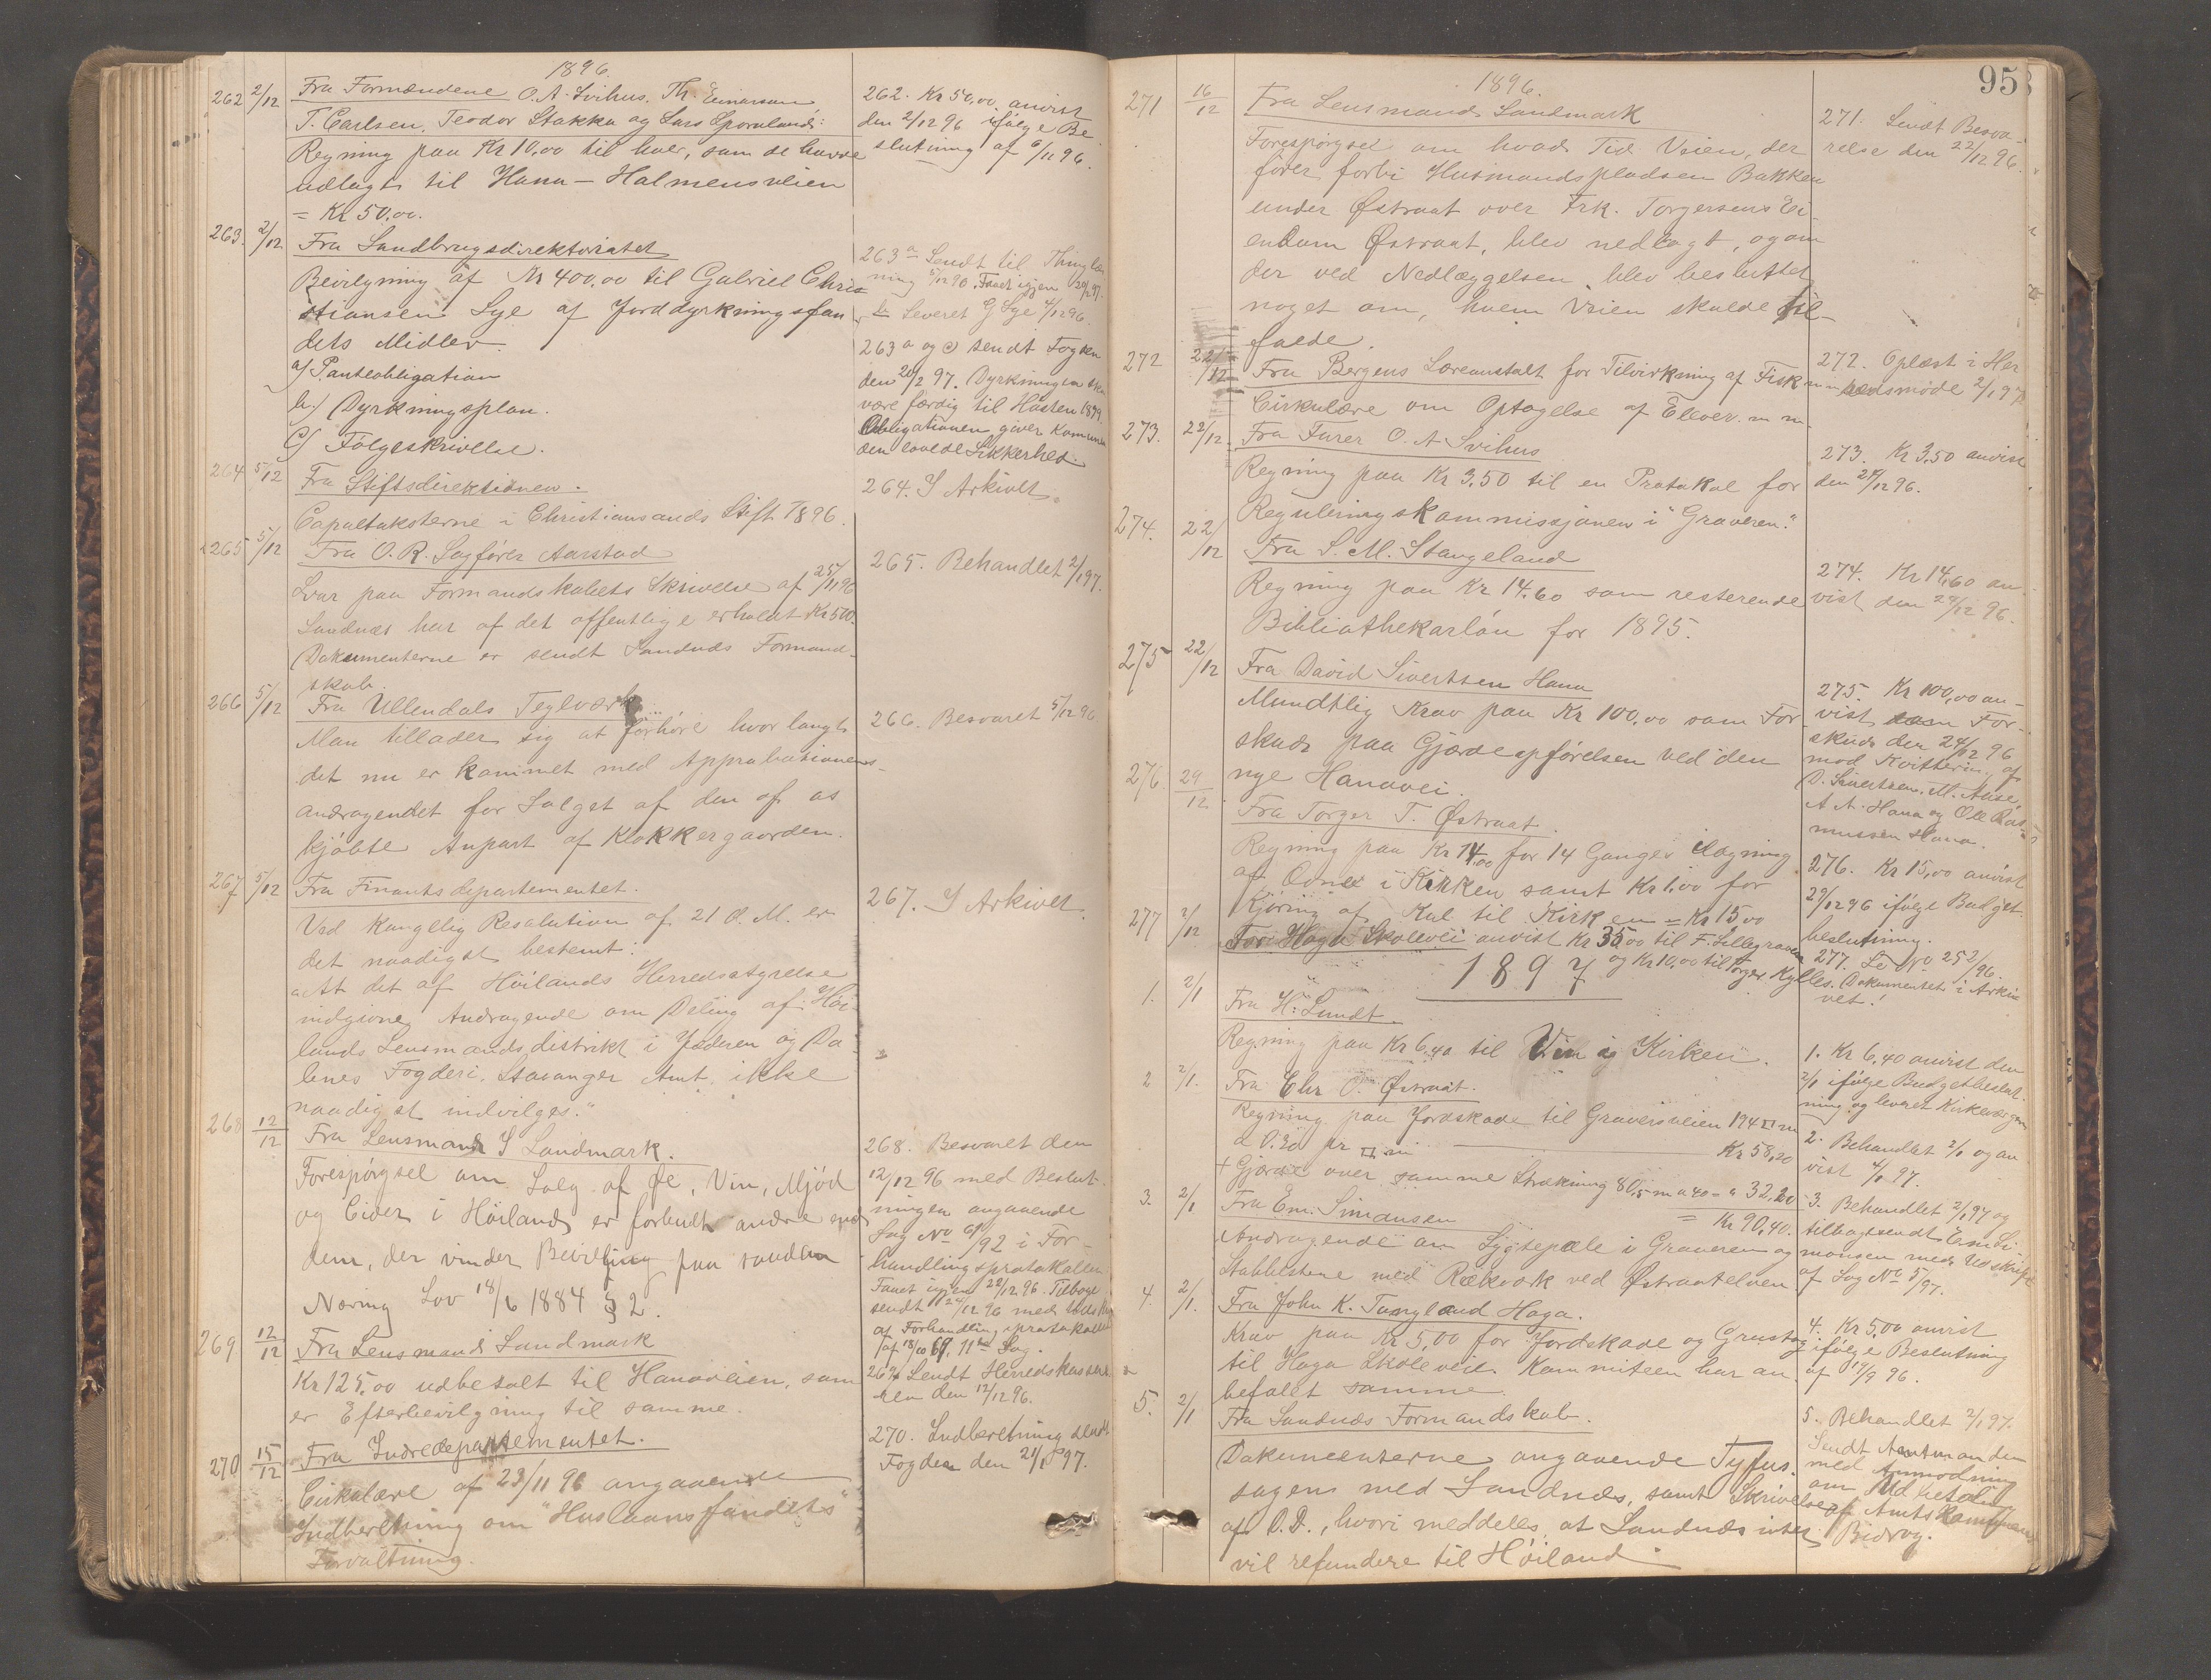 1896.
262 2/12 Fra Formændene O. A. Svihus. Th. Einarsen
T. Carlsen, Teodor Stokka og Lars Sporaland:
Regning paa Kr 10,00 til hver, som de havde
udlagt til Hana - Holmensveien
= Kr 50,00.
262. Kr 50,00 anvist
den 2/12 96 ifølge Be
slutning af 6/11 96.
263. 2/12 Fra Landbrugsdirektoriatet
Bevilgning af Kr 400,00 til Gabriel Chri
stiansen Lye af Jorddyrkningsfon
dets Midler
a) Panteobligation
b) Dyrkningsplan.
C) Følgeskrivelse.
263 a Sendt til Thinglæs
ning 5/12 90. Faaet igjen 20/1 97.
b Leveret G Lye 4/12 96.
263 a og c) sendt Fogden
den 20/2 97. Dyrkningen ska
være færdig til Høsten 1899
Obligationen giver Kommunen
den lovede Sikkerhed.
264 5/12 Fra Stiftsdirektionen.
Capseltaksterne i Christiansands Stift 1896.
264. I Arkivet.
265 5/12 Fra O. R. Sagfører Aarstad
Svar paa Formandskabets Skrivelse af 25/11 96
Sandnæs har af det offentlige erholdt Kr 500.
Dokumenterne er sendt Sandnæs Formand-
skab.
265. Behandlet 2/1 97.
266 5/12 Fra Ullendals Teglværk
Man tillader sig at forhøre hvor langt
det nu er kommet med Approbations-
andragendet for Salget af den af os
kjøbte Anpart af Klokkergaarden.
266. Besvaret 5/12 96
267 5/12 Fra Finantsdepartementet.
Ved Kongelig Resolution af 21 d. M. er
det naadigst bestemt:
"At det af Høilands Herredsstyrelse
indgivne Andragende om Deling af Høi-
lands Lensmandsdistrikt i Jæderen og Da-
lenes Fogderi, Stavanger Amt ikke
naadigst indvilges."
267. I Arkivet.
268 12/12 Fra Lensmand S Landmark.
Forespørgsel om Salg af Øl, Vin, Mjød
og Cider i Høiland er forbudt andre end
dem, der vinder Bevilling paa saadan
Næring Lov 18/6 1884 § 2.
268. Besvaret den
12/12 96 med Beslut-
ningen angaaende
Sag No 61/92 i For-
handlingsprotokollen
Faaet igjen 22/12 96. Tilbage
sendt 24/12 96 med Udskrift
af Forhandlingsprotokollen
af 18/10 67. 11te Sag.
269 12/12 Fra Lensmand Landmark
Kr 125,00 udbetalt til Hanaveien, som
er Efterbevilgning til samme.
269 Sendt Herredskassere
ren den 12/12 96.
270 15/12 Fra Indredepartementet.
Cirkulære af 23/11 96 angaaende
Indberetning om "Huslaansfondets"
Forvaltning.
270. Indberetning sendt
Fogden den 21/1 97.
1896.
95
271 16/12 Fra Lensmand Landmark
Forespørgsel om hvad Tid Veien, der
fører forbi Husmandspladsen Bakken
under Østraat over Frk. Torgersens Ei-
endom Østraat, blev nedlagt, og om
der ved Nedlæggelsen blev besluttet
noget om, hvem Veien skulde til-
falde.
271. Sendt Besva-
relse den 22/12 96.
272 22/12 Fra Bergens Læreanstalt for Tilvirkning af Fisk m m
Cirkulære om Optagelse af Elever. m m.
272. Oplæst i Her
redsmøde 2/1 97
273. 22/12. Fra Fører O. A Svihus
Regning paa Kr 3,50 til en Protokol for
Reguleringskommissjonen i "Graveren."
273. Kr 3,50 anvist
den 24/12 96.
274. 22/12 Fra S. M. Stangeland
Regning paa Kr 14,60 som resterende
Bibliothekarløn for 1895.
274. Kr 14,60 an
vist den 24/12 96.
275 22/12 Fra David Sivertsen Hana
Mundtlig Krav paa Kr 100,00 som For
skud paa Gjærdeopførelsen ved den
nye Hanavei.
275. Kr 100,00 an-
vist som For-
skud den 24/12 96
mod Kvittering af
D. Sivertsen. M. Aase,
A A. Hana og Ole Ras-
mussen Hana.
276. 29/12. Fra Torger T. Østraat.
Regning paa Kr 14,00 for 14 Ganges Ilægning
af Ovne i Kirken samt Kr 1,00 for
Kjøring af Kul til Kirken = Kr 15,00
276. Kr 15,00 anvist
29/12 96 ifølge Budget
beslutning.
277 2/12 For Haga Skolevei anvist Kr 35,00 til F. Lillegraven
og Kr 10,00 til Torger Kylles.
277. Se No 252/96.
Dokumentet i Arki
vet!
1897
1. 2/1 Fra H. Lundt.
Regning paa Kr 6,40 til Vin i Kirken.
1. Kr 6,40 anvist den
2/1 ifølge Budgetbeslut
ning og leveret Kirkeværgen
2 2/1. Fra Chr O. Østraat.
Regning paa Jordskade til Graversveien 194 □ m
a 0.30 pr □ m Kr 58,20
+ Gjærde over samme Strækning 80,5 m a 40 = " 32,20
= Kr 90,40.
2. Behandlet 2/1 og an
vist 4/1 97.
3. 2/1 Fra Em. Simonsen
Andragende om Lygtepæle i Graveren og
Stabbestene med Rækværk ved Østraatelven
3. Behandlet 2/1 97 og
tilbagesendt Em Si
monsen med Udskrift
af Sag No 5/97.
4. 2/1. Fra John K. Tungland Hoga.
Krav paa Kr 5,00 for Jordskade og Grustag
til Hoga Skolevei. Kommiteen har an
befalet samme.
4. Kr 5,00 anvist
ifølge Beslutning
af 17/9 96.
5. 2/1 Fra Sandnæs Formandskab.
Dokumenterne angaaende Tyfus-
sagen med Sandnæs, samt Skrivelse
af O.D., hvori meddeles, at Sandnæs intet
vil refundere til Høiland
5. Behandlet 2/1 97.
Sendt Amtmanden
med Anmodning
om Udbetaling
af Amtskommunens
Bidrag.